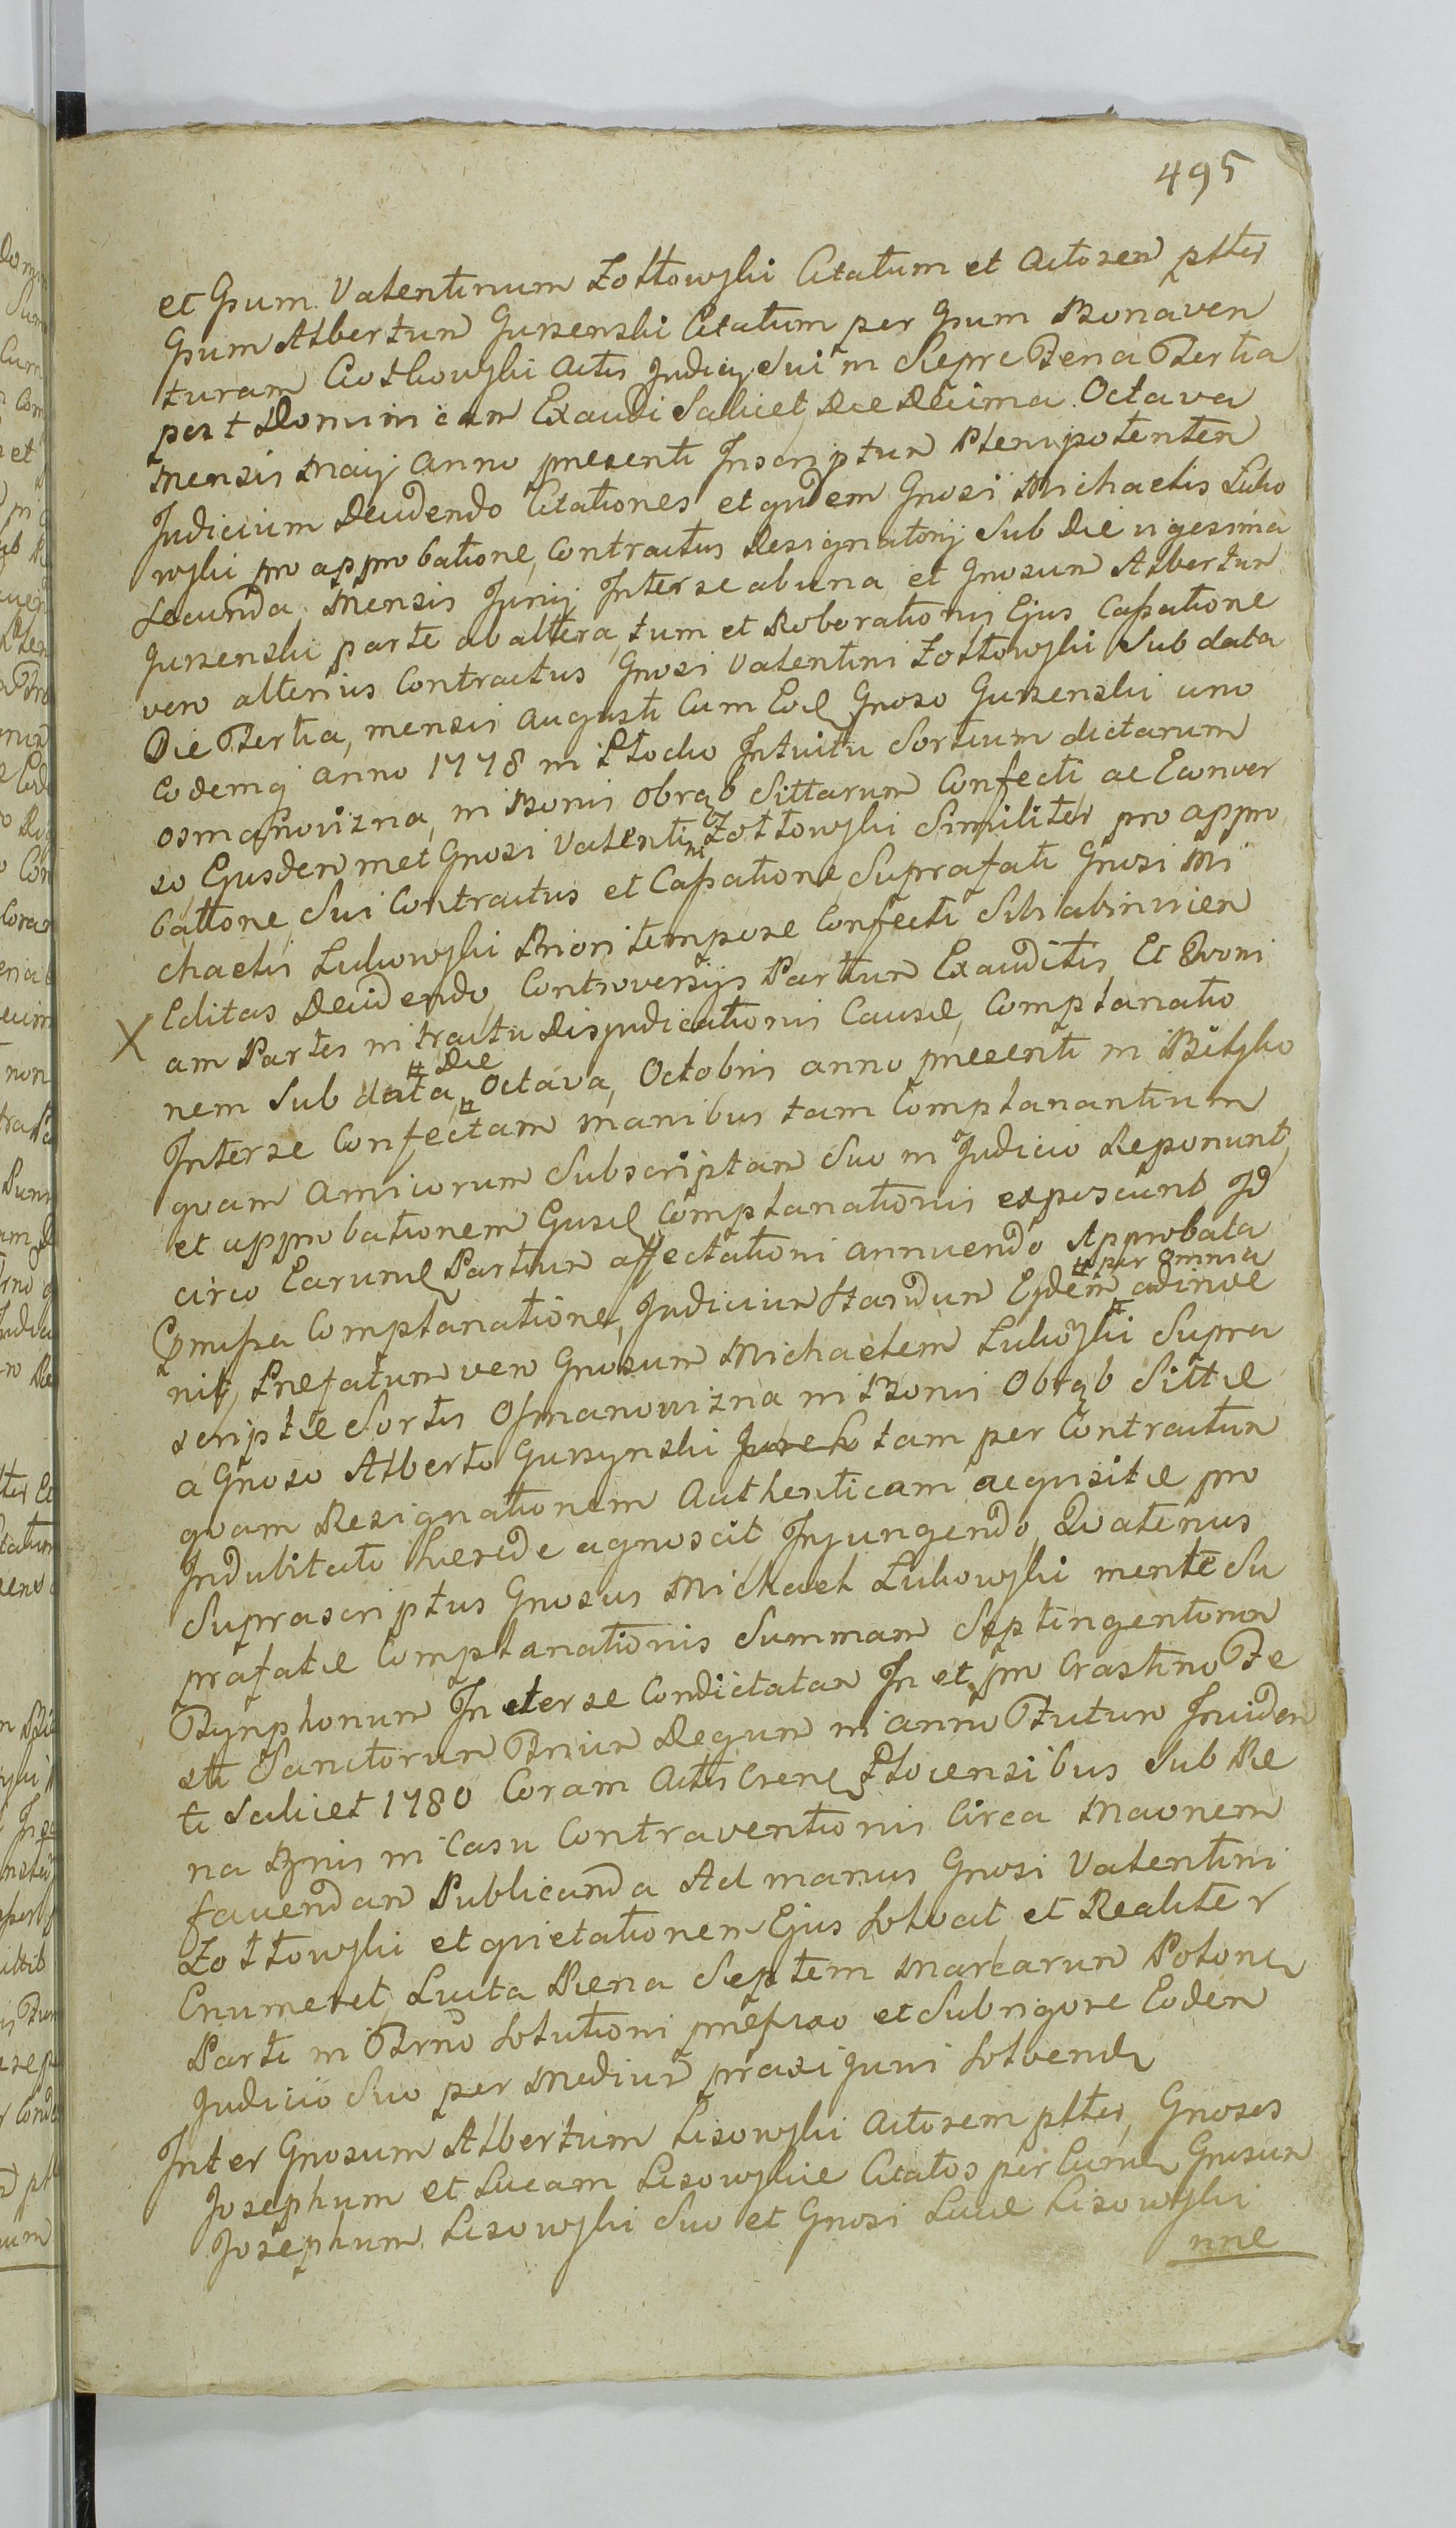 495
et Gsum Valentinum Zołtowski Citatum et Actorem ptter
Gsum Albertum Gurzenski Citatum per Gsum Bonaven
turam Ciothowski Actis Judicij Sui in Sieprc Feria Tertia
post Dominicam Exaudi Scilicet Die Decima Octava
Mensis Maij Anno presenti Inscriptum Plenipotentem
Judicium Decidendo Citationes et quidem Gnosi Michaelis Luko
wski pro approbatione, Contractus Resignatorij Sub Die vigesima
Secunda Mensis Junij Inter se ab una et Gnosum Albertum
Gurzenski parte ab altera, tum et Roborationis Ejus Cassatione
vero alterius Contractus Gnosi Valentini Zołtowski Sub data
Die Tertia, mensis Augusti Cum Eod Gnoso Gurzenski uno
Eodemq anno 1778 in Płocko Intuitu Sortium dictarum
Osmanowizna, in Bonis Obrąb Sittarum Confecti ac Econver
so Ejusdemmet Gnosi Valentini Zołtowski Similiter pro appro
batione Sui Contractus et Cassatione Suprafati Gnosi Mi
chaelis Lukowski Priori tempore Confecti Sibi abinvicem
Editas Decidendo, Controversijs Partium Exauditis, Et quoni
X am Partes in tractu Disjudicationis Causæ, Complanatio
nem Sub data # Die # Octava, Octobris anno preesenti in Bilsko
Inter se Confectam manibus tam Complanantium
quam Amicorum Subscriptam Suo in Judicio Reponunt,
et approbationem Ejusd Complanationis exposcunt Id
circo Earund Partium affectationi annuendo Approbata
Præmissa Complanatione, Judicium Standum Eidem # per omnia # adinve
nit, Prefatum vero Gnosum Michaelem Lukowski Supra
scriptæ Sortis Osmanowizna in Bonis Obrąb Sittæ
a Gnoso Alberto Gurzynski tam per Contractum
quam Resignationem Authenticam acquisitæ pro
Indubitato hærede agnoscit, Injungendo, Quatenus
Suprascriptus Gnosus Michael Lukowski mente Su
præfatæ Complanationis Summam Septingentorum
Tynphonum Inter se Condictatam In et pro Crastino Fe
sti Sanctorum Trium Regum in anno Futuro Inciden
ti Scilicet 1780 Coram Actis Cren Płocensibus Sub Pæ
na Bnis in Casu Contraventionis Circa Maonem
favendam Publicanda Ad manus Gnosi Valentini
Zołtowski et quietationem Ejus Solvat et Realiter
Enumeret, Luita Pæna Septem Marcarum Polon
Parti in Trno Solutioni præfixo et Sub rigore Eodem
Judicio Suo per Medium præxi Juni Solvend
Inter Gnosum Albertum Lisowski Actorem ptter, Gnosos
Josephum et Lucam Lisowskie Citatos per Eund Gnosum
Josephum Lisowski Suo et Gnosi Lucæ Lisowski
nne